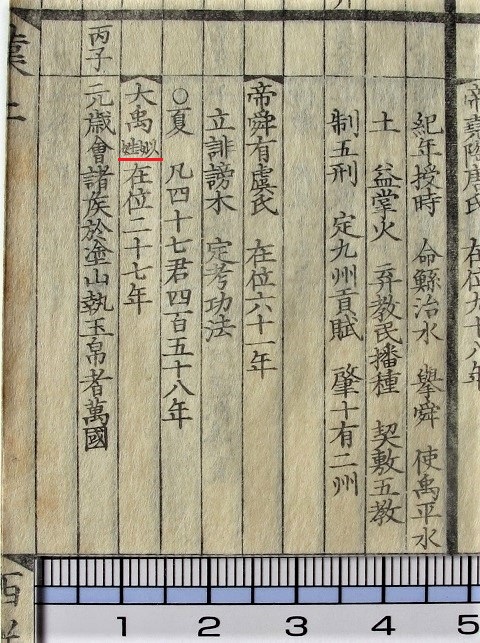 帝堯陶唐氏 在位九十八年
紀年授時 命鯀治水 擧舜 使禹平水
土 益掌火 弃教民播種 契敷五教
制五刑 定九州貢賦 肇十有二州
帝舜有虞氏 在位六十一年
立誹謗木 定考功法
○夏 凡四十七君四百五十八年
大禹姒姓在位二十七年
丙子 元歲會諸侯於塗山執玉帛者萬國
1 2 3 4 5